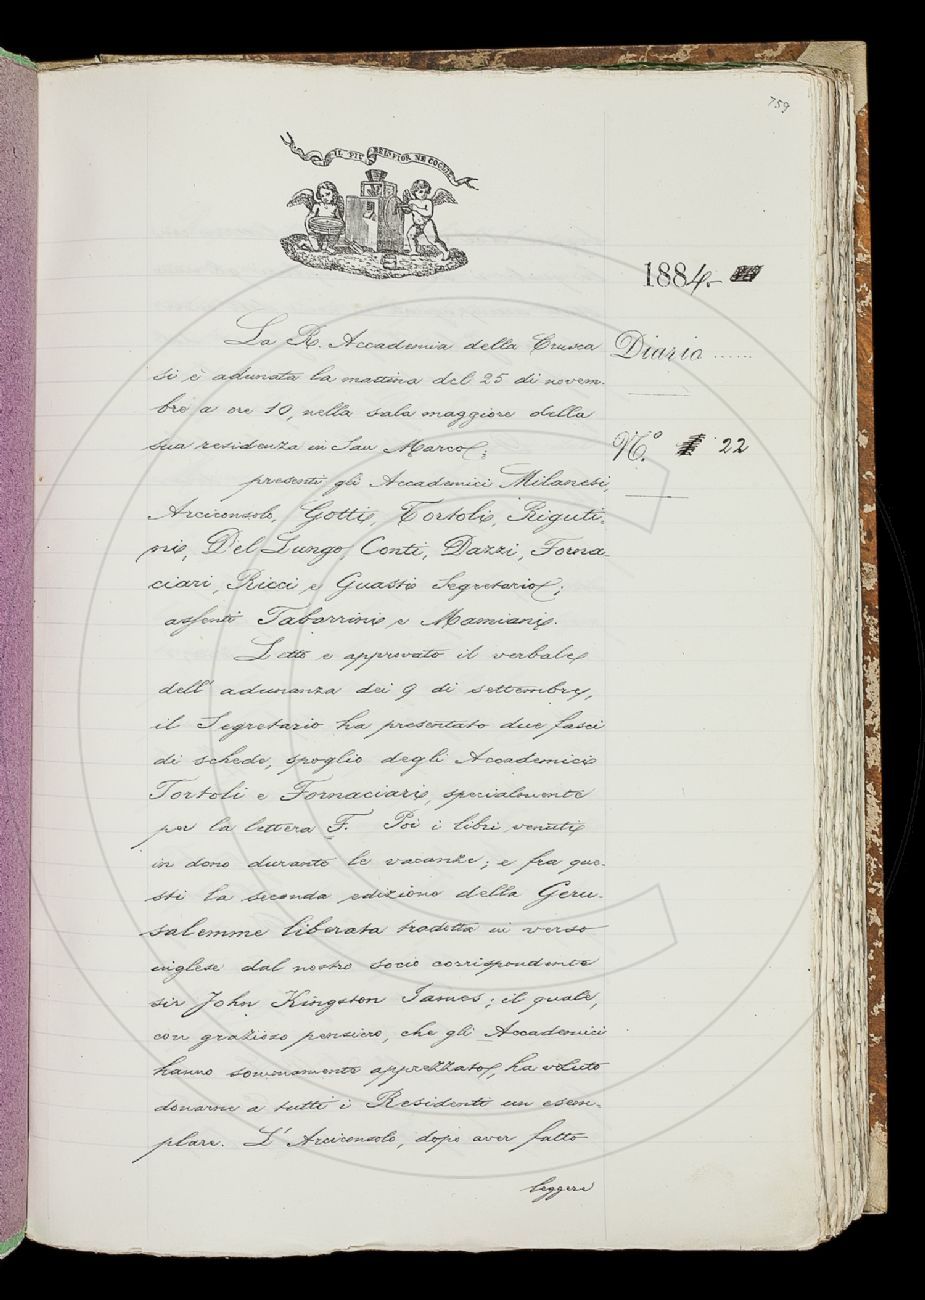 759
IL PIÙ BEL FIOR NE COGLIE
1884.
La R. Accademia della Crusca
Diario ......
si è adunata la mattina del 25 di novem-
bre a ore 10, nella sala maggiore della
sua residenza in San Marco;
N.° 22
presenti gli Accademici Milanesi,
Arciconsolo, Gotti, Tortoli, Riguti-
ni, Del Lungo, Conti, Dazzi, Forna-
ciari, Ricci e Guasti Segretario;
assenti Tabarrini e Mamiani.
Letto e approvato il verbale
dell' adunanza dei 9 di settembre,
il Segretario ha presentato due fasci
di schede, spoglio degli Accademici
Tortoli e Fornaciari, specialmente
per la lettera F. Poi i libri venuti
in dono durante le vacanze; e fra que-
sti la seconda edizione della Geru-
salemme liberata tradotta in verso
inglese dal nostro socio corrispondente
sir John Kingston James; il quale,
con grazioso pensiero, che gli Accademici
hanno sommamente apprezzato, ha voluto
donarne a tutti i Residenti un esem-
plare. L' Arciconsolo, dopo aver fatto
leggere